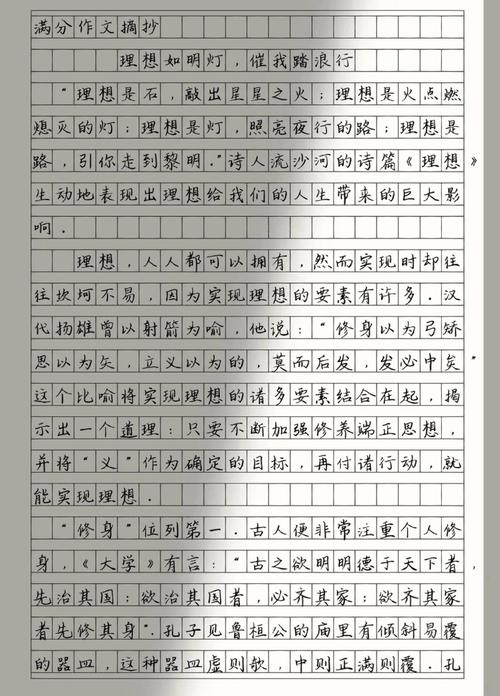 满分作文摘抄
理想如明灯，催我踏浪行
“理想是石，敲出星星之火；理想是火点燃
熄灭的灯；理想是灯，照亮夜行的路；理想是
路，引你走到黎明.”诗人流沙河的诗篇《理想》
生动地表现出理想给我们的人生带来的巨大影
响.
理想，人人都可以拥有，然而实现时却往
往坎坷不易，因为实现理想的要素有许多.汉
代扬雄曾以射箭为喻，他说：“修身以为弓矫
思以为矢，立义以为的，莫而后发，发必中矣”
这个比喻将实现理想的诸多要素结合在起，揭
示出一个道理：只要不断加强修养端正思想，
并将“义”作为确定的目标，再付诸行动，就
能实现理想.
“修身”位列第一.古人便非常注重个人修
身，《大学》有言：“古之欲明明德于天下者，
先治其国；欲治其国者，必齐其家；欲齐其家
者先修其身”.孔子见鲁桓公的庙里有倾斜易覆
的器皿，这种器皿虚则欹，中则正满则覆.孔